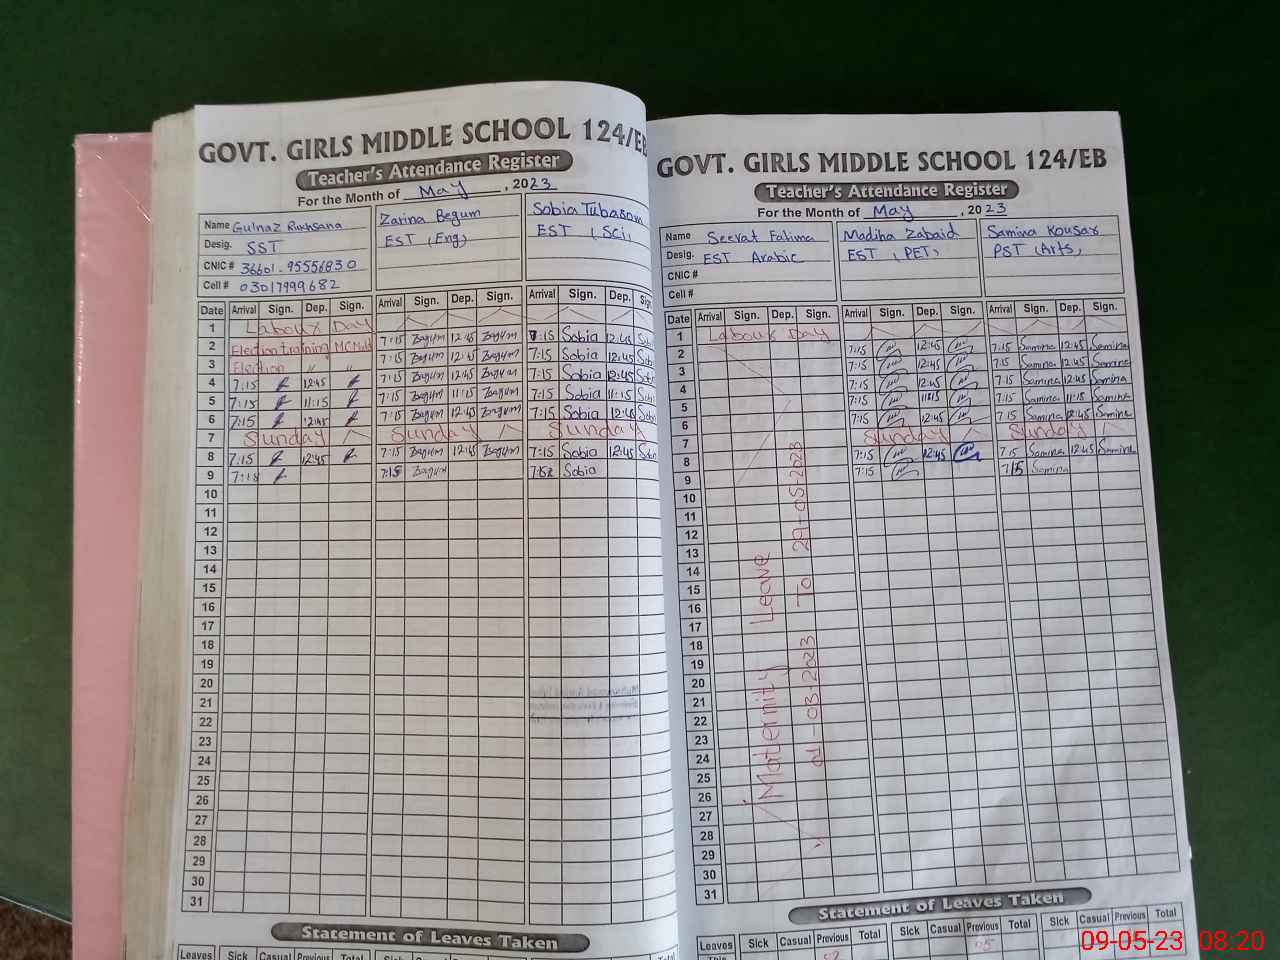 GOVT. GIRLS MIDDLE SCHOOL 124/EB
Teacher's Attendance Register
For the Month of May, 2023
Name Gulnaz Rukhsana Zarina Begum Sobia Tubasom
Desig. SST EST (Eng) EST (Sci)
CNIC # 36601-95556830
Cell # 03017999682
Date Arrival Sign. Dep. Sign. Arrival Sign. Dep. Sign. Arrival Sign. Dep. Sign.
1 Labour Day
2 Election training 7:15 Begum 12:45 Begum 7:15 Sobia 12:45
3 Election " " 7:15 Begum 12:45 Begum 7:15 Sobia 12:45
4 7:15 12:45 7:15 Begum 12:45 Begum 7:15 Sobia 12:45
5 7:15 11:15 7:15 Begum 11:15 Begum 7:15 Sobia 11:15
6 7:15 12:45 7:15 Begum 12:45 Begum 7:15 Sobia 12:45
7 Sunday Sunday Sunday
8 7:15 12:45 7:15 Begum 12:45 Begum 7:15 Sobia 12:45
9 7:18 7:15 Begum Sobia
10
11
12
13
14
15
16
17
18
19
20
21
22
23
24
25
26
27
28
29
30
31
Statement of Leaves Taken
Leaves Sick Casual Previous Total Sick Casual Previous Total Sick Casual
GOVT. GIRLS MIDDLE SCHOOL 124/EB
Teacher's Attendance Register
For the Month of May, 2023
Name Seerat Fatima Madiha Zabaid Samina Kousar
Desig. EST Arabic EST (PET) PST (Arts)
CNIC #
Cell #
Date Arrival Sign. Dep. Sign. Arrival Sign. Dep. Sign. Arrival Sign. Dep. Sign.
1 Labour Day
2 7:15 12:45 7:15 Samina 12:45 Samina
3 7:15 12:45 7:15 Samina 12:45 Samina
4 7:15 12:45 7:15 Samina 12:45 Samina
5 7:15 11:15 7:15 Samina 11:15 Samina
6 7:15 12:45 7:15 Samina 12:45 Samina
7 Sunday Sunday
8 7:15 12:45 7:15 Samina 12:45 Samina
9 7:15 7:15 Samina
10
11
12
13
14
15
16
17
18
19
20
21
22
23
24
25
26
27
28
29
30
31
Maternity Leave
01-03-2023 To 29-05-2023
Statement of Leaves Taken
Leaves Sick Casual Previous Total Sick Casual Previous Total Sick Casual Previous Total
This 05
09-05-23 08:20